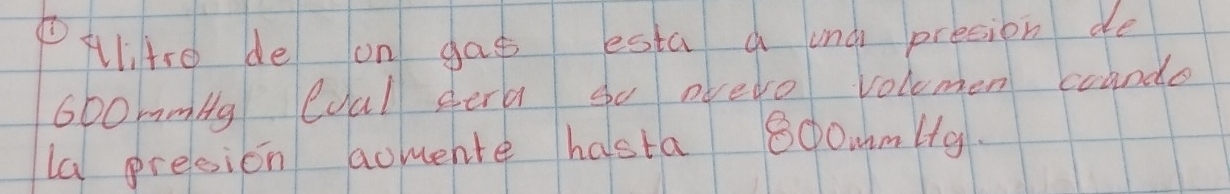 ① 4litro de un gas esta a una presion de
600mmHg Cual sera su nuevo volumen cuando
la presión aumente hasta 800mmHg.